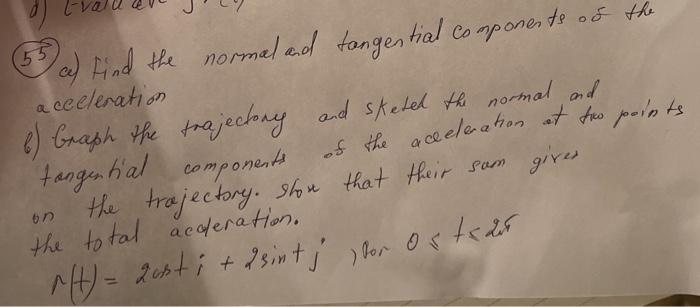 d) Evaluate
55 a) Find the normal and tangential components of the
acceleration
b) Graph the trajectory and sketch the normal and
tangential components of the acceleration at two points
on the trajectory. Show that their sum gives
the total acceleration.
r(t) = 2cost i + 2sint j , for 0 ≤ t ≤ 2π